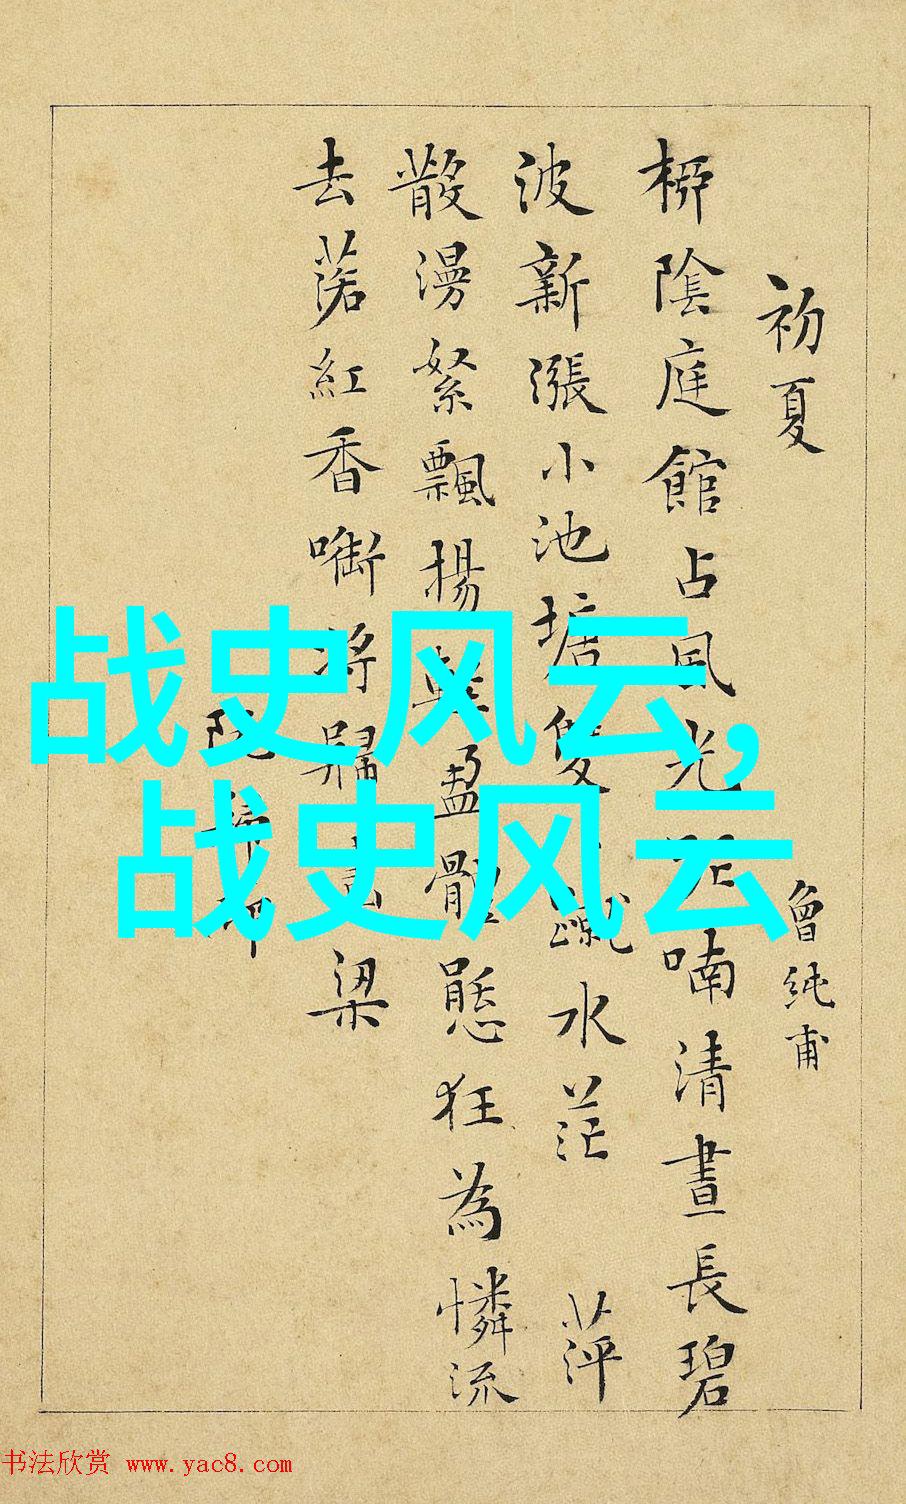 初夏 曾純甫
栁陰庭館占風光呢喃清晝長碧
波新漲小池塘雙蹴水茫 萍
散漫絮飄揚輕盈體態狂為憐流
去落紅香啣將歸梁
阮
战史风云,
战史风云
书法欣赏 www.yac8.com